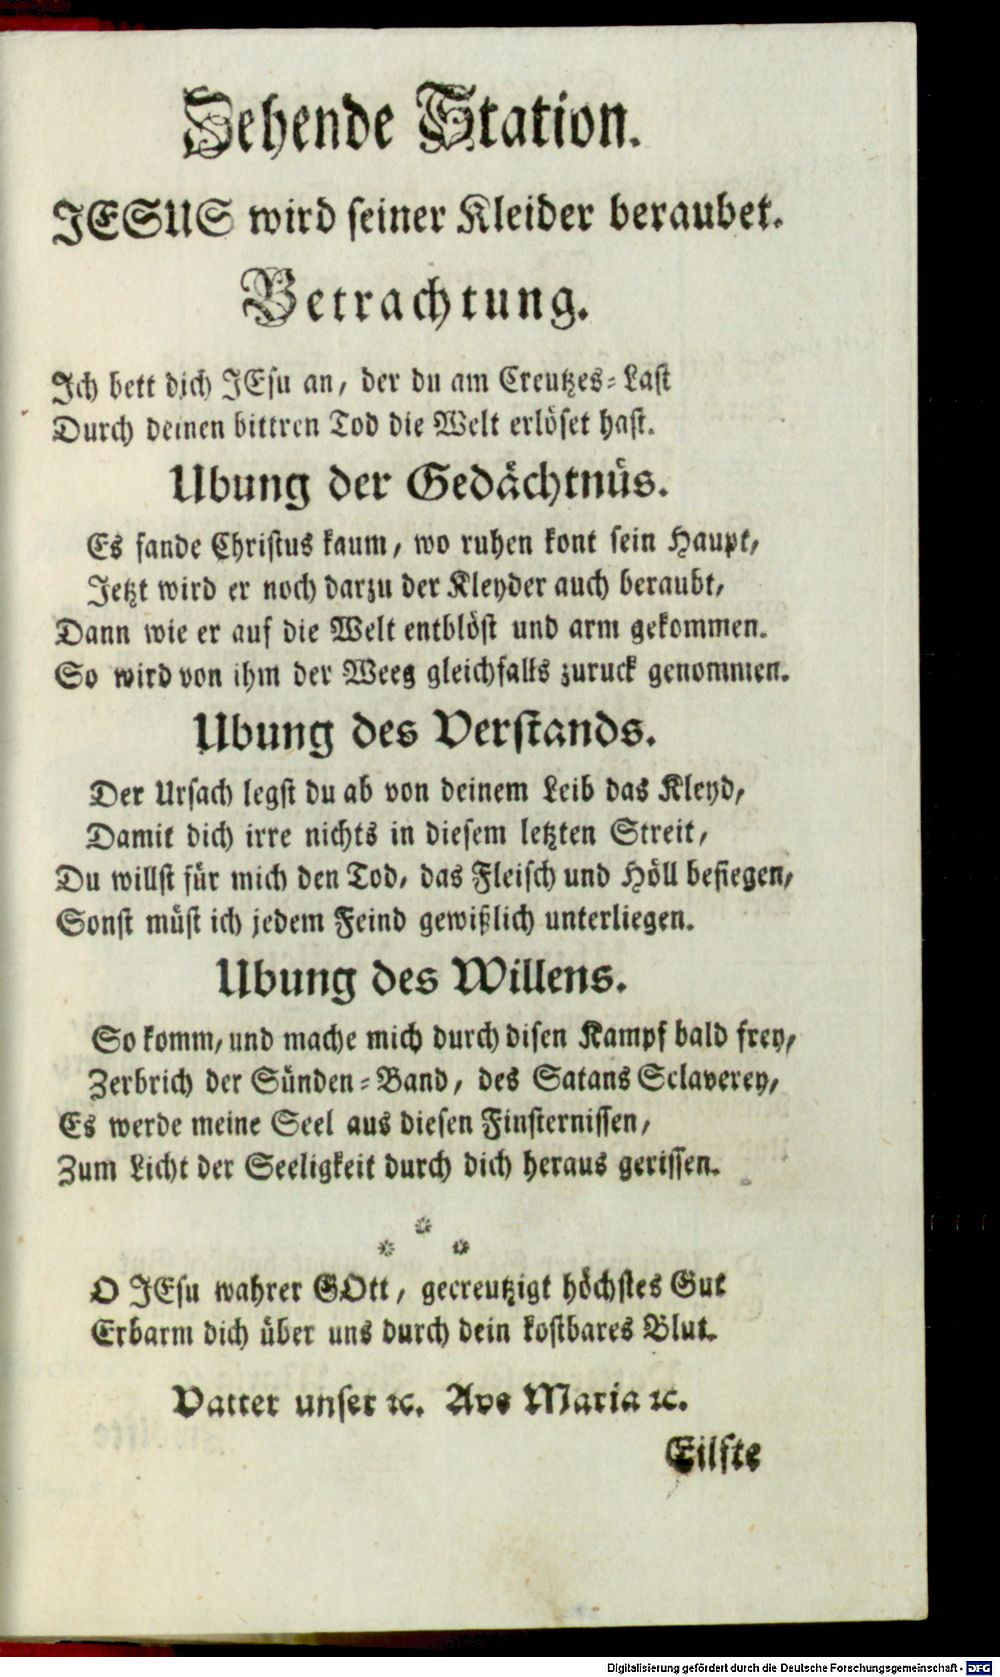 Zehende Station.
JESUS wird seiner Kleider beraubet.
Betrachtung.
Ich bett dich JEsu an, der du am Creutzes-Last
Durch deinen bittren Tod die Welt erlöset hast.
Ubung der Gedächtnüs.
Es fande Christus kaum, wo ruhen kont sein Haupt,
Jetzt wird er noch darzu der Kleyder auch beraubt,
Dann wie er auf die Welt entblöst und arm gekommen.
So wird von ihm der Weeg gleichfalls zuruck genommen.
Ubung des Verstands.
Der Ursach legst du ab von deinem Leib das Kleyd,
Damit dich irre nichts in diesem letzten Streit,
Du willst für mich den Tod, das Fleisch und Höll besiegen,
Sonst müst ich jedem Feind gewißlich unterliegen.
Ubung des Willens.
So komm, und mache mich durch disen Kampf bald frey,
Zerbrich der Sünden-Band, des Satans Sclaverey,
Es werde meine Seel aus diesen Finsternissen,
Zum Licht der Seeligkeit durch dich heraus gerissen.
* * *
O JEsu wahrer GOtt, gecreutzigt höchstes Gut
Erbarm dich über uns durch dein kostbares Blut.
Vatter unser ꝛc. Ave Maria ꝛc.
Eilfte
Digitalisierung gefördert durch die Deutsche Forschungsgemeinschaft - DFG